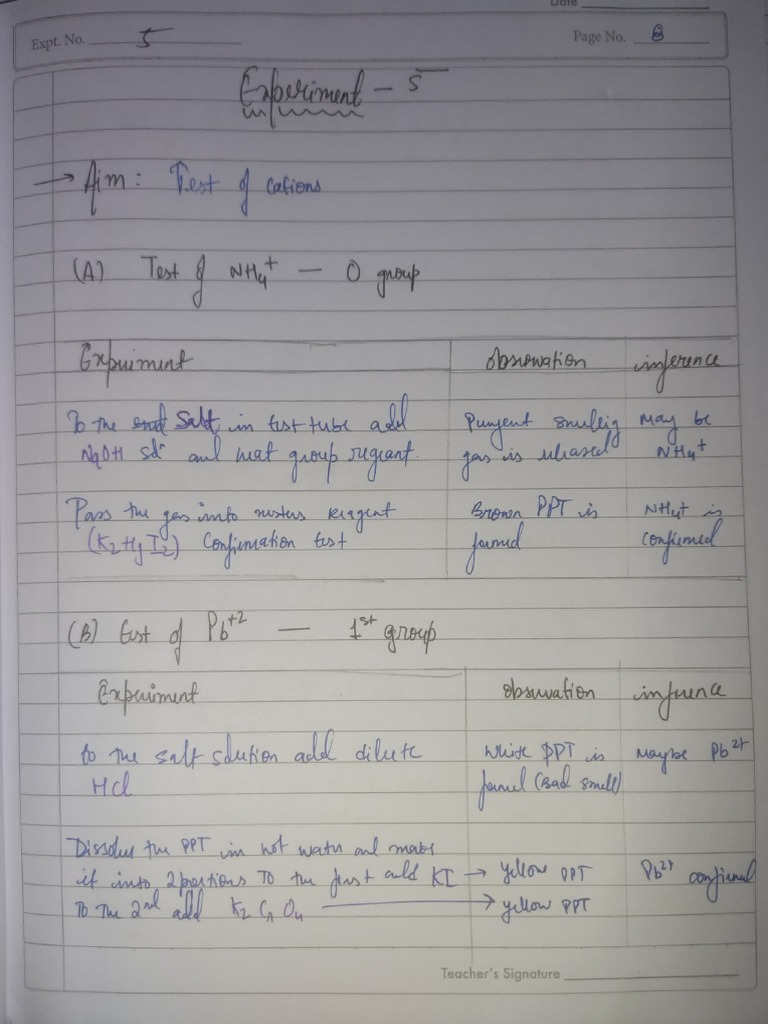 Date
Expt. No. 5
Page No. 8
Experiment - 5
→ Aim: Test of cations
(A) Test of NH4+ — 0 group
Expuiment observation inference
To the salt in test tube add Pungent smulling may be
NaOH soln and heat group regeant. gas is released NH4+
Pass the gas into reagent Brown PPT is NH4+ is
(K2HgI2) Confirmation test formed confirmed
(B) test of Pb+2 — 1st group
Experiment observation infuence
to the salt solution add dilute white PPT is Maybe Pb2+
HCl formed (Bad smell)
Dissolve the PPT in hot water and make
it into 2 portions To the first add KI → yellow PPT Pb2+ confirmed
To the 2nd add K2 Cr O4 → yellow PPT
Teacher's Signature